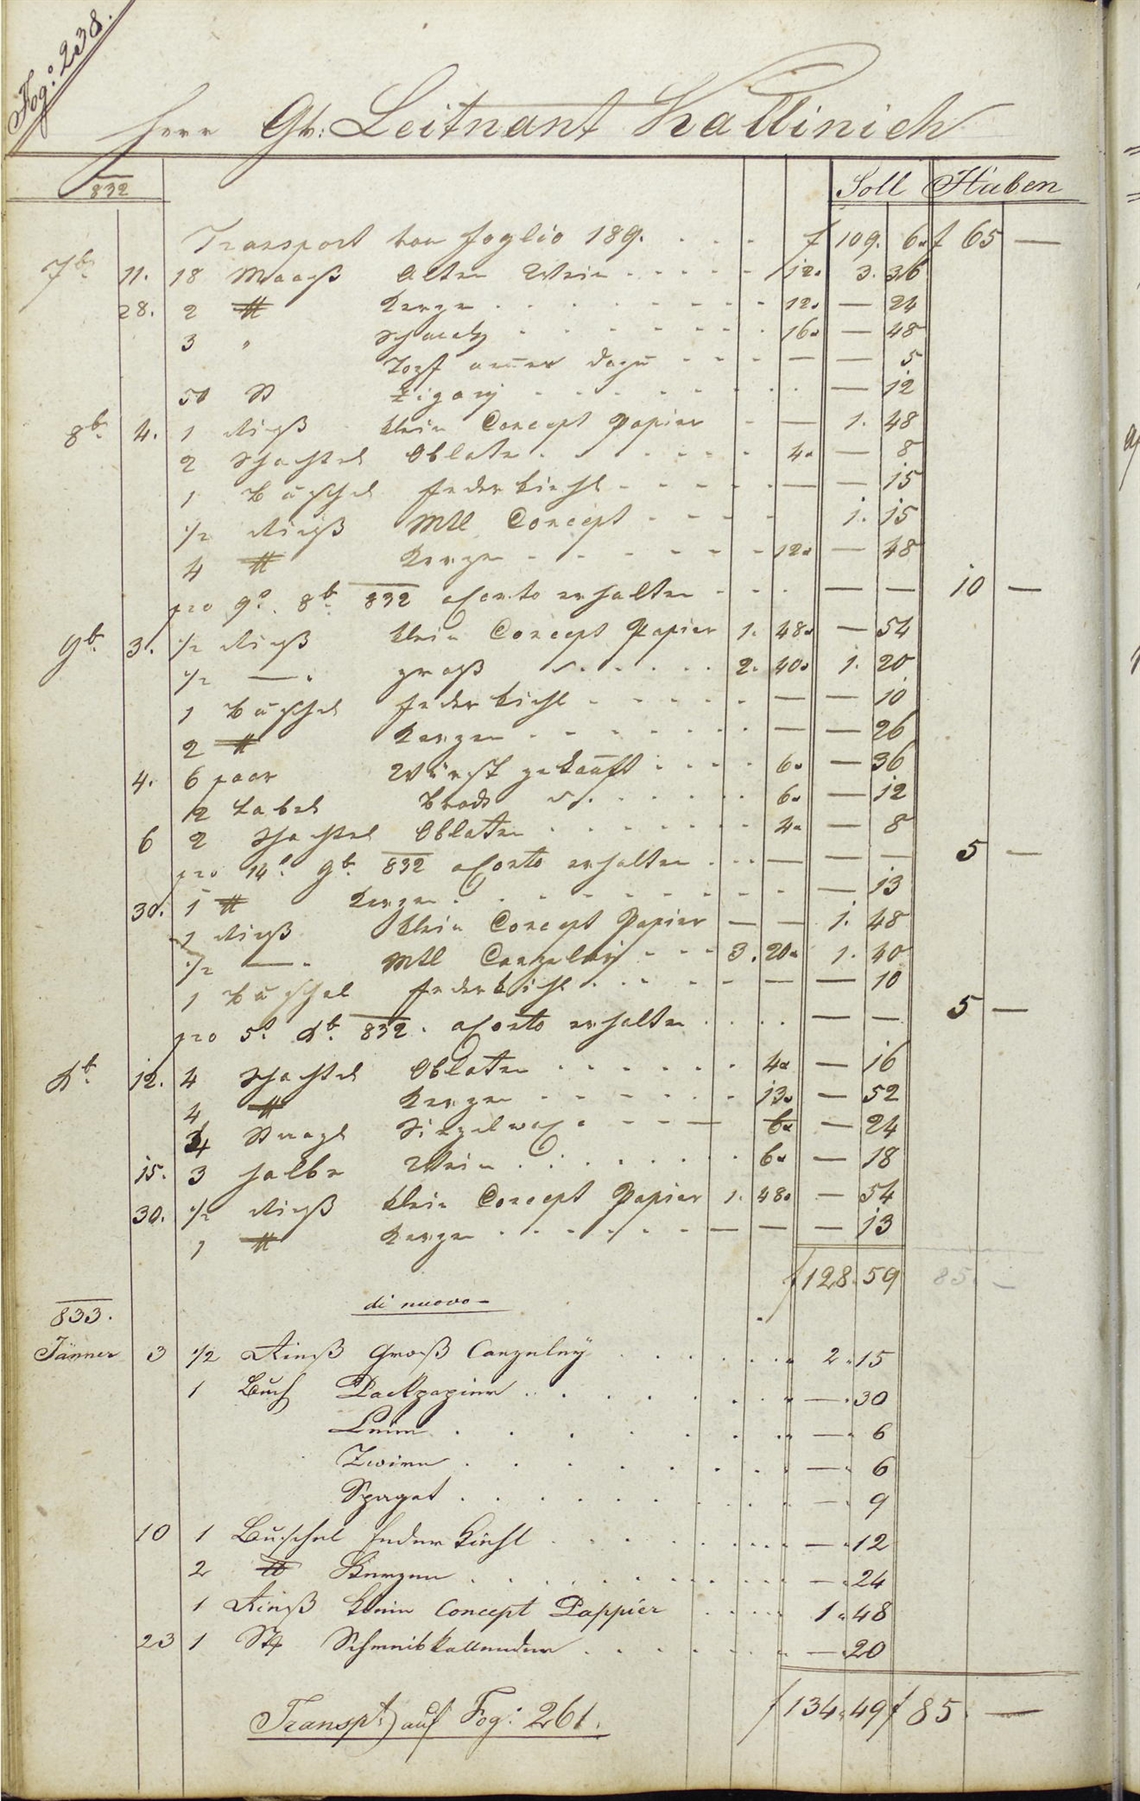 Fog: 238.
Herr Gb: Leitnant Kallinich
832 Soll Haben
Transport von Foglio 189. f 109. 6 f 65 —
7br 11. 18 Maaß Alten Wein 12 3. 36
28. 2 ℔ Kerzen 12 — 24
3 " Schmalz 16 — 48
Topf dazu — — 5
50 St Zigary — 12
8br 4. 1 Rieß klein Concept Papier — 1. 48
2 Schachtel Oblaten 4 — 8
1 Büschel Federkiehl — — 15
1/2 Rieß Mttl Concept 1. 15
4 ℔ Kerzen 12 — 48
pro 9t 8br 832 aConto erhalten — — 10 —
9br 3. 1/2 Rieß klein Concept Papier 1. 48 — 54
1/2 — " groß 2. 40 1. 20
1 Büschel Federkiehl — — 10
2 ℔ Kerzen — — 26
4. 6 paar Würst gekauft 6 — 36
2 Label Brodt 6 — 12
6 2 Schachtel Oblaten 4 — 8
pro 14t 9br 832 aConto erhalten — — — 5 —
30. 1 ℔ Kerzen — 13
1 Rieß klein Concept Papier — — 1. 48
1/2 — " Mttl Canzeley 3. 20 1. 40
1 Büschel Federkiehl — — 10
pro 5t Xbr 832. aConto erhalten — — 5 —
Xbr 12. 4 Schachtel Oblaten 4 — 16
4 ℔ Kerzen 13 — 52
4 Stangl Siegelwax 6 — 24
15. 3 halbe Wein 6 — 18
30. 1/2 Rieß klein Concept Papier 1. 48 — 54
1 ℔ Kerzen — — — 13
f 128. 59 85. —
833. di nuovo
Jänner 3 1/2 Rieß Groß Canzeley 2. 15
1 Buch Packpapier — 30
Leim — 6
Zwirn — 6
Spagat — 9
10 1 Büschel Federkiehl — 12
2 ℔ Kerzen — 24
1 Rieß klein Concept Pappier 1. 48
23 1 St Schreibkallender — 20
Transpt) auf Fog: 261. f 134. 49 f 85. —